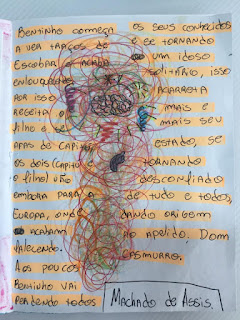 Bentinho começa
a ver traços de
Escobar e acaba
enlouquecendo
por isso
rejeita o
filho e se
afas de Capitu,
os dois (Capitu
e filho) vão
embora para a
Europa, onde
acabam
falecendo.
Aos poucos
Bentinho vai
perdendo todos
os seus conhecidos
e se tornando
um idoso
solitário, isso
acarreta
mais e
mais seu
estado, se
tornando
desconfiado
de tudo e todos,
dando origem
ao apelido. Dom
Casmurro.
Machado de Assis.